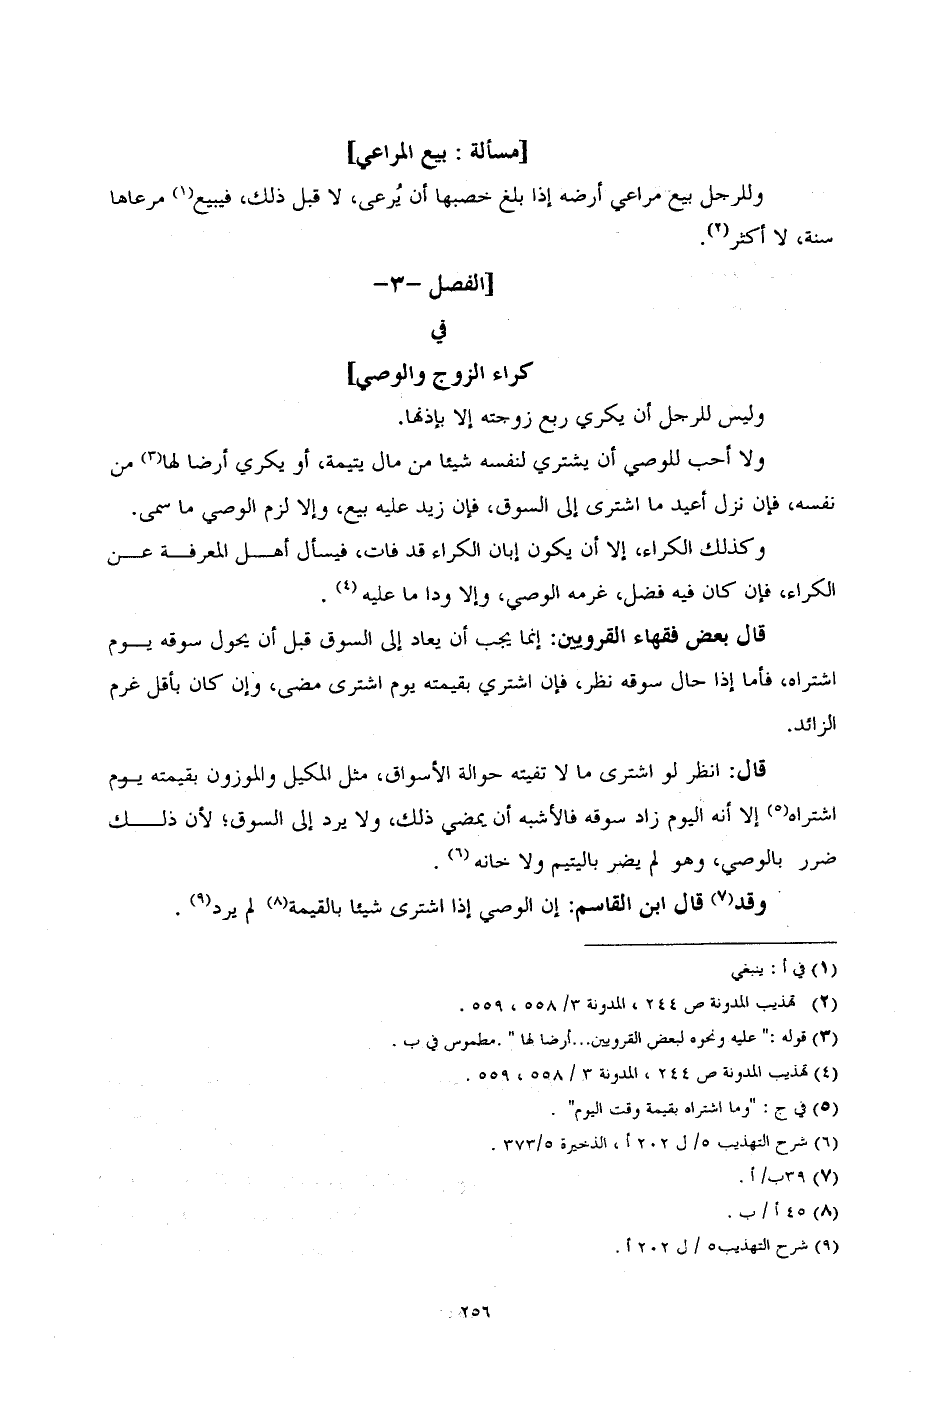 [مسألة : بيع المراعي]
وللرجل بيع مراعي أرضه إذا بلغ خصبها أن يُرعى، لا قبل ذلك، فيبيع(١) مرعاها
سنة، لا أكثر(٢).
[الفصل -٣-
في
كراء الزوج والوصي]
وليس للرجل أن يكري ربع زوجته إلا بإذنها.
ولا أحب للوصي أن يشتري لنفسه شيئا من مال يتيمة، أو يكري أرضا لها(٣) من
نفسه، فإن نزل أعيد ما اشترى إلى السوق، فإن زيد عليه بيع، وإلا لزم الوصي ما سمى.
وكذلك الكراء، إلا أن يكون إبان الكراء قد فات، فيسأل أهل المعرفة عن
الكراء، فإن كان فيه فضل، غرمه الوصي، وإلا ودا ما عليه(٤) .
قال بعض فقهاء القرويين: إنما يجب أن يعاد إلى السوق قبل أن يحول سوقه يوم
اشتراه، فأما إذا حال سوقه نظر، فإن اشتري بقيمته يوم اشترى مضى، وإن كان بأقل غرم
الزائد.
قال: انظر لو اشترى ما لا تفيته حوالة الأسواق، مثل المكيل والموزون بقيمته يوم
اشتراه(٥) إلا أنه اليوم زاد سوقه فالأشبه أن يمضي ذلك، ولا يرد إلى السوق؛ لأن ذلك
ضرر بالوصي، وهو لم يضر باليتيم ولا خانه(٦) .
وقد(٧) قال ابن القاسم: إن الوصي إذا اشترى شيئا بالقيمة(٨) لم يرد(٩) .
(١) في أ : ينبغي
(٢) تهذيب المدونة ص ٢٤٤ ، المدونة ٣/ ٥٥٨ ، ٥٥٩ .
(٣) قوله :" عليه ونحوه لبعض القرويين...أرضا لها " .مطموس في ب .
(٤) تهذيب المدونة ص ٢٤٤ ، المدونة ٣ / ٥٥٨ ، ٥٥٩ .
(٥) في ج : "وما اشتراه بقيمة وقت اليوم" .
(٦) شرح التهذيب ٥/ ل ٢٠٢ أ ، الذخيرة ٣٧٣/٥ .
(٧) ٣٩ب/ أ .
(٨) ٤٥ أ / ب .
(٩) شرح التهذيب٥ / ل ٢٠٢ أ .
٢٥٦